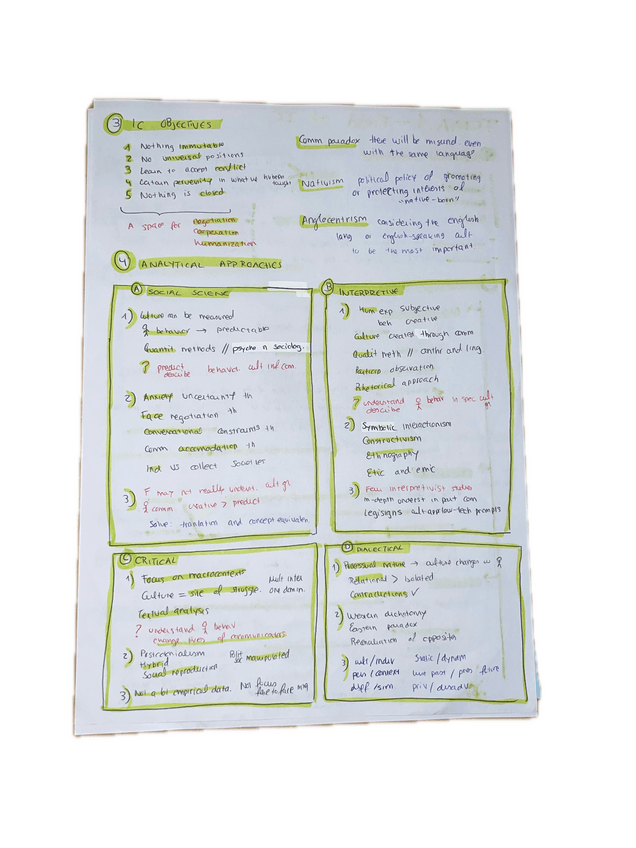 3 IC OBJECTIVES
1 Nothing immutable
2 No universal positions
3 Learn to accept conflict
4 Certain perversity in what we hybrem taught
5 Nothing is closed
A space for negotiation
cooperation
humanization
Comm paradox there will be misund even
with the same language
Nativism political policy of promoting
or protecting interests of
"native-born"
Anglocentrism considering the english
lang or english-speaking cult
to be the most important
4 ANALYTICAL APPROACHES
A SOCIAL SCIENC
1) Culture can be measured
behavior → predictable
Quantit methods // psycho n sociolog.
? predict
describe behavior cult inf com.
2) Anxiety uncertainty th
Face negotiation th
Conversational constraints th
Comm accomodation th
Ind VS collect societies
3) F may not really underst. cult gr
comm creative > predict
Solve: translation and concept equivalen
B INTERPRETIVE
1) Hum exp subjective
beh creative
Culture created through comm
Qualit meth // anthr and ling
Pattern observation
Rhetorical approach
? understand
describe behav in spec cult gr
2) Symbolic interactionism
Constructivism
Ethnography
Etic and emic
3) Few interpretivist studies
in-depth underst in part com
C CRITICAL
1) Focus on macrocontexts
Culture = site of struggle. Mult inter
One domin.
Textual analysis
? understand behav
change lives of communicators
2) Postcolonialism
Hybrid
Social reproduction
3) Not a lot empirical data. Not focus
face to face
D DIALECTICAL
1) Processual nature → culture changes
Relational > isolated
Contradictions ✓
2) Western dichotomy
Eastern paradox
Reevaluation of opposits
3) cult/indiv static/dynam
pers/context past/pres future
diff/sim priv/disadv